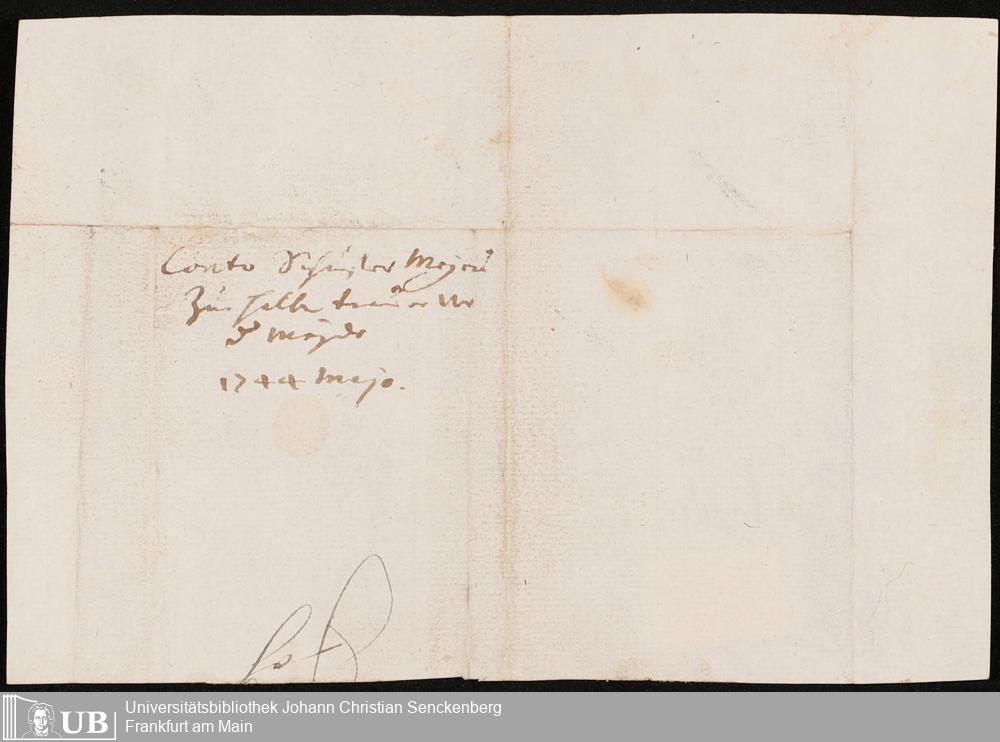 Conto Schuster Meyer
Zur halbe trauer Ur
d Meyer
1744 Majo.
UB
Universitätsbibliothek Johann Christian Senckenberg
Frankfurt am Main